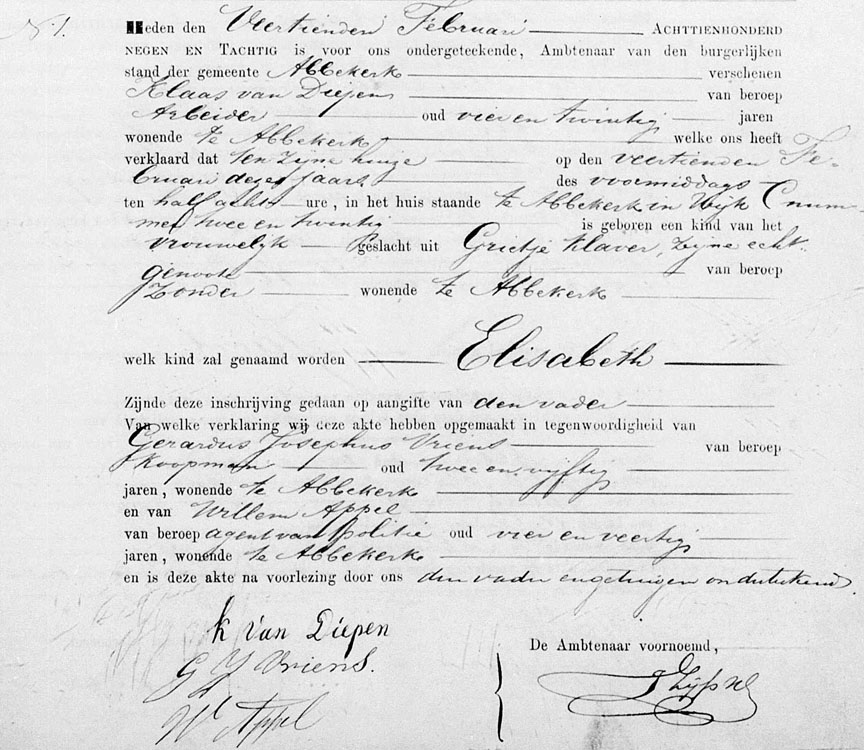 N. 1.
Heden den Veertienden Februari ACHTTIENHONDERD
NEGEN EN TACHTIG is voor ons ondergeteekende, Ambtenaar van den burgerlijken
stand der gemeente Abbekerk verschenen
Klaas van Diepen van beroep
Arbeider oud vier en twintig jaren
wonende te Abbekerk welke ons heeft
verklaard dat ten zijne huize op den veertienden Fe-
bruari dezes jaars des voormiddags
ten half acht ure, in het huis staande te Abbekerk in Wijk C num-
mer twee en twintig is geboren een kind van het
vrouwelijk geslacht uit Grietje Klaver, zijne echt-
genoote van beroep
Zonder wonende te Abbekerk
welk kind zal genaamd worden Elisabeth
Zijnde deze inschrijving gedaan op aangifte van den vader
Van welke verklaring wij deze akte hebben opgemaakt in tegenwoordigheid van
Gerardus Josephus Vriens van beroep
Koopman oud twee en vijftig
jaren, wonende te Abbekerk
en van Willem Appel
van beroep agent van Politie oud vier en veertig
jaren, wonende te Abbekerk
en is deze akte na voorlezing door ons den vader en getuigen onderteekend.
K van Diepen
De Ambtenaar voornoemd,
G J Vriens.
W Appel